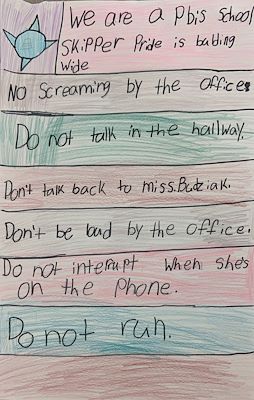 We are a Pbis School
SKiPPer Pride is bulding
wide
No Screaming by the office
Do not talk in the hallway.
Don't talk back to miss.Budziak.
Don't be loud by the office.
Do not interupt when she's
on the phone.
Do not run.